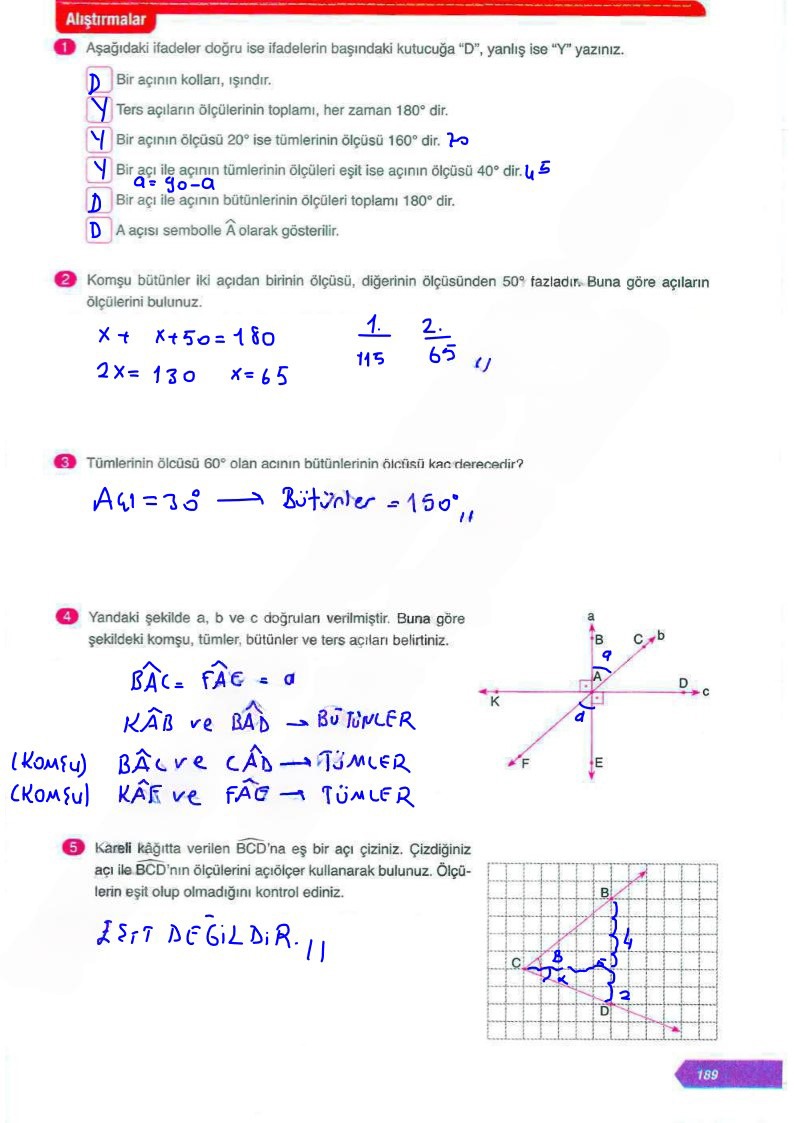 Alıştırmalar
1 Aşağıdaki ifadeler doğru ise ifadelerin başındaki kutucuğa "D", yanlış ise "Y" yazınız.
D Bir açının kolları, ışındır.
Y Ters açıların ölçülerinin toplamı, her zaman 180° dir.
Y Bir açının ölçüsü 20° ise tümlerinin ölçüsü 160° dir. 70
Y Bir açı ile açının tümlerinin ölçüleri eşit ise açının ölçüsü 40° dir. 45
a = 90-a
D Bir açı ile açının bütünlerinin ölçüleri toplamı 180° dir.
D A açısı sembolle Â olarak gösterilir.
2 Komşu bütünler iki açıdan birinin ölçüsü, diğerinin ölçüsünden 50° fazladır. Buna göre açıların
ölçülerini bulunuz.
x + x+50 = 180 1. 2.
2x = 130 x = 65 115 65 //
3 Tümlerinin ölçüsü 60° olan açının bütünlerinin ölçüsü kaç derecedir?
Açı = 30° → Bütünler = 150° //
4 Yandaki şekilde a, b ve c doğruları verilmiştir. Buna göre
şekildeki komşu, tümler, bütünler ve ters açıları belirtiniz.
BÂC = FÂE = a
KÂB ve BÂD → BÜTÜNLER
(KOMŞU) BÂC ve CÂD → TÜMLER
(KOMŞU) KÂF ve FÂE → TÜMLER
a
B C b
a
A
D
K c
a
F E
5 Kareli kâğıtta verilen BCD'na eş bir açı çiziniz. Çizdiğiniz
açı ile BCD'nın ölçülerini açıölçer kullanarak bulunuz. Ölçü-
lerin eşit olup olmadığını kontrol ediniz.
EŞİT DEĞİLDİR. //
B
4
C B
2
D
189